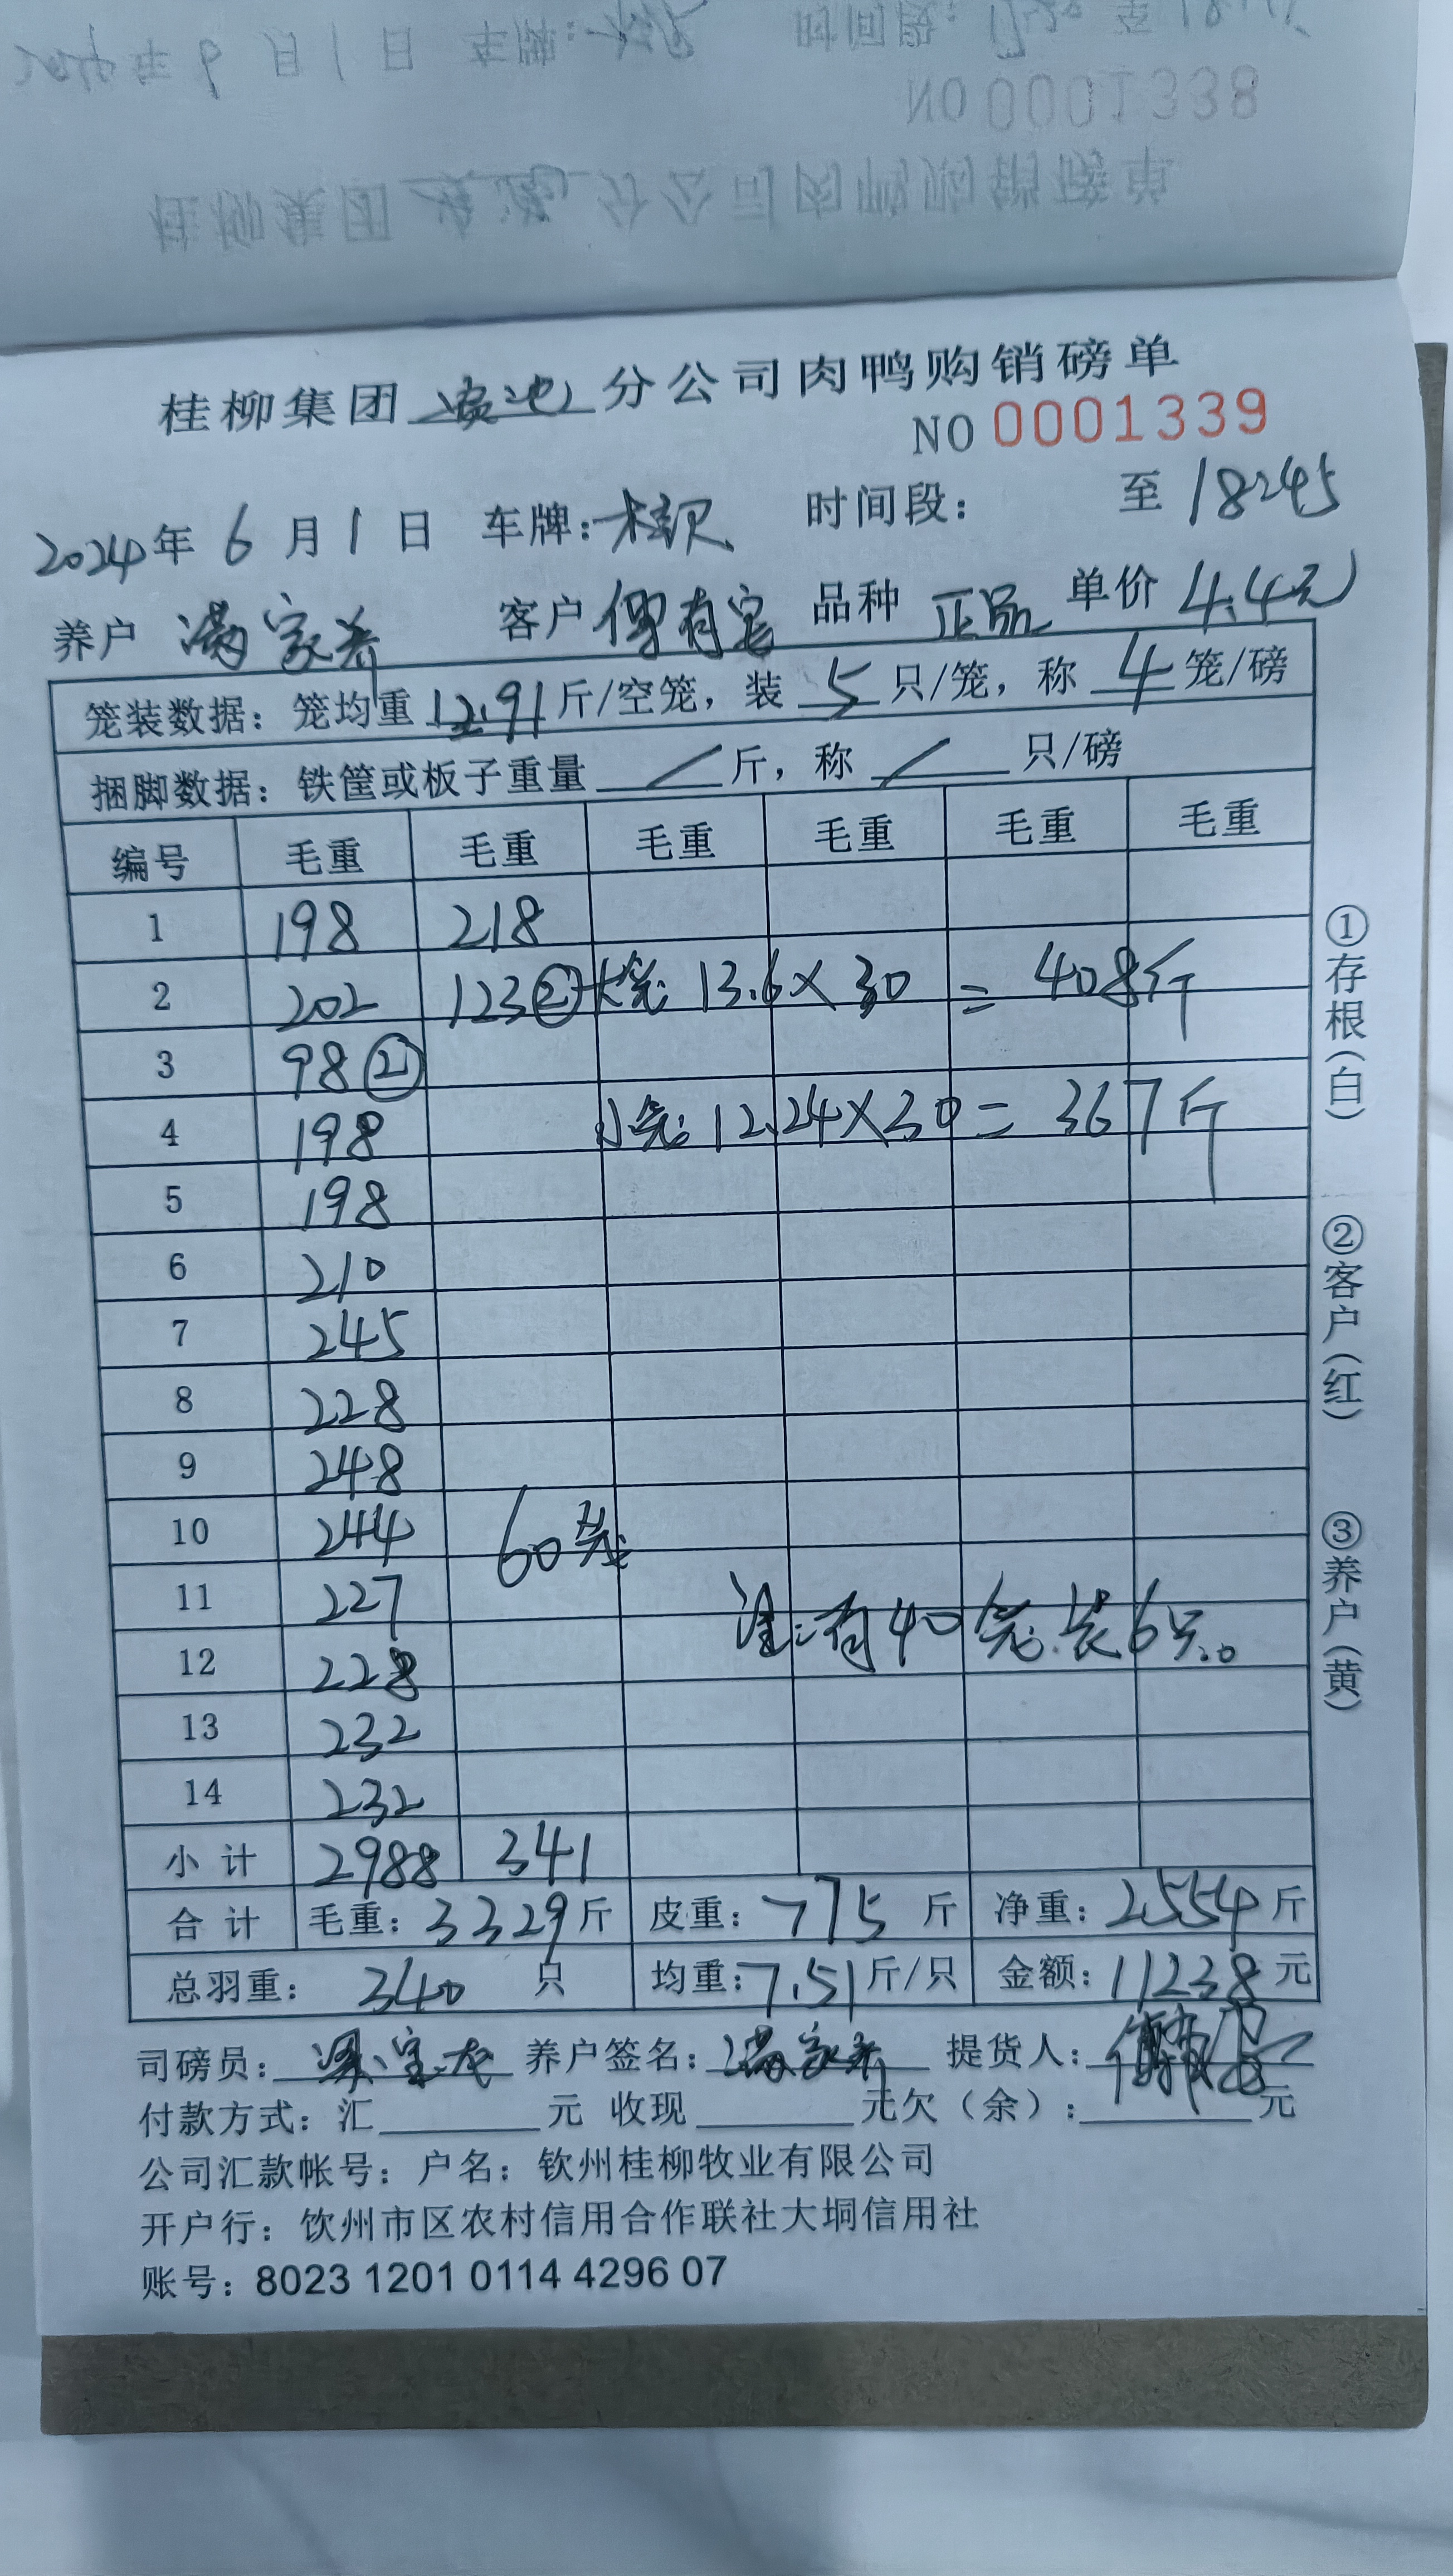 NO 0001338
桂柳集团 分公司肉鸭购销磅单
桂柳集团 分公司肉鸭购销磅单
NO 0001339
2024年 6 月 1 日 车牌: 时间段: 至 18:45
养户 满家齐 客户 傅有宝 品种 正品 单价 4.4元
笼装数据: 笼均重 12.91 斤/空笼, 装 5 只/笼, 称 4 笼/磅
捆脚数据: 铁筐或板子重量 / 斤, 称 / 只/磅
编号 毛重 毛重 毛重 毛重 毛重 毛重
1 198 218
2 202 123② 大笼: 13.6×30 = 408斤
3 98②
4 198 小笼: 12.24×30 = 367斤
5 198
6 210
7 245
8 228
9 248
10 244 60笼
11 227 注:有40笼装6只。
12 228
13 232
14 232
小计 2988 341
合计 毛重: 3329斤 皮重: 775 斤 净重: 2554斤
总羽重: 340 只 均重: 7.51斤/只 金额: 11238元
司磅员: 养户签名: 满家齐 提货人:
付款方式: 汇 元 收现 元欠（余）: 元
公司汇款帐号: 户名: 钦州桂柳牧业有限公司
开户行: 饮州市区农村信用合作联社大垌信用社
账号: 8023 1201 0114 4296 07
①存根(白) ②客户(红) ③养户(黄)